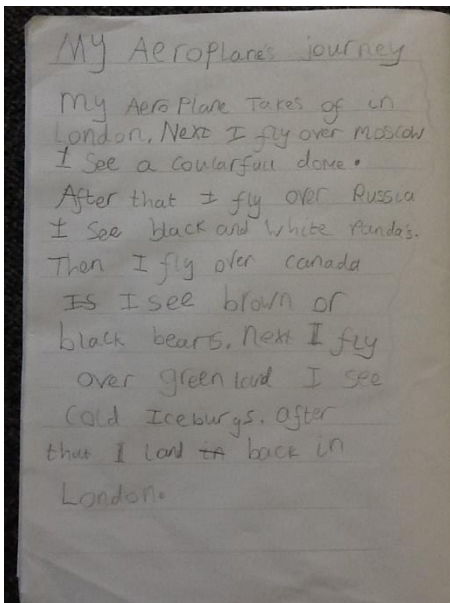 My Aeroplane's journey
My AeroPlane Takes of in
London. Next I fly over moscow
I see a coularfull dome.
After that I fly over Russia
I see black and white Panda's.
Then I fly over canada
Is I see brown or
black bears. Next I fly
over green land I see
Cold Iceburgs. after
that I land in back in
London.